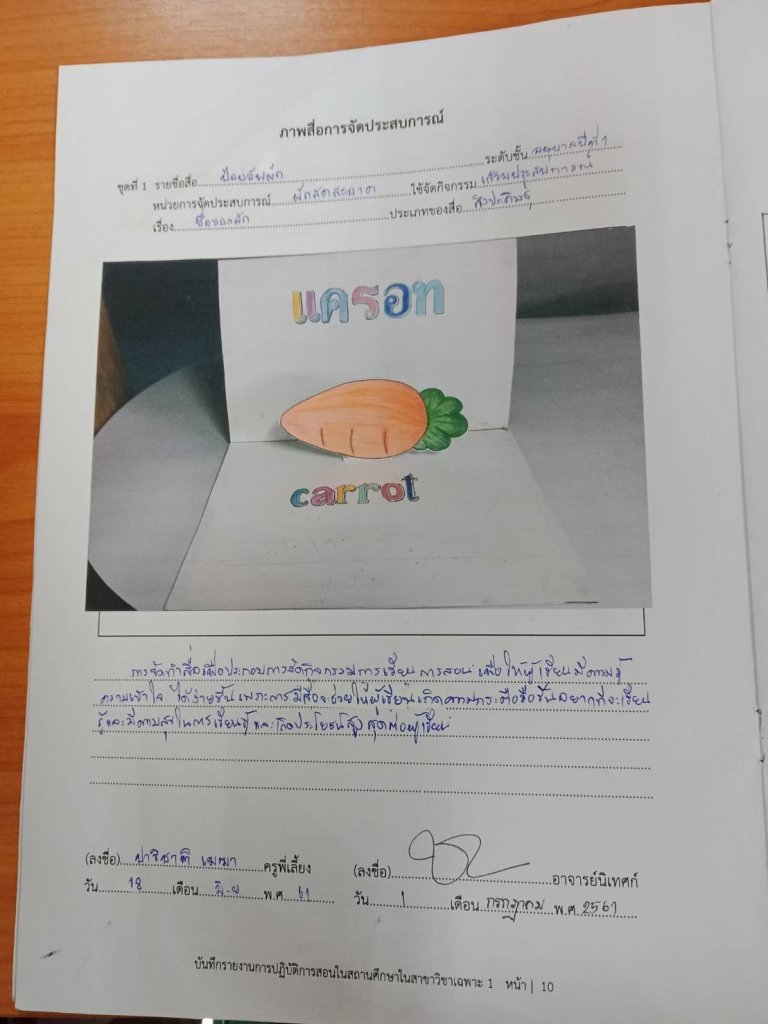 ภาพสื่อการจัดประสบการณ์
ชุดที่ 1 รายชื่อสื่อ ป๊อบอัพผัก ระดับชั้น อนุบาลปีที่ 1
หน่วยการจัดประสบการณ์ ผักสดสะอาด ใช้จัดกิจกรรม เสริมประสบการณ์
เรื่อง ชื่อของผัก ประเภทของสื่อ สิ่งประดิษฐ์
แครอท
carrot
การจัดทำสื่อเพื่อประกอบการจัดกิจกรรมการเรียนการสอน เพื่อให้ผู้เรียนมีความรู้
ความเข้าใจ ได้ง่ายขึ้น เพราะการมีสื่อจะช่วยให้ผู้เรียนเกิดความกระตือรือร้นอยากที่จะเรียน
รู้และมีความสุขในการเรียนรู้ และเกิดประโยชน์สูงสุดต่อผู้เรียน
(ลงชื่อ) ปาริชาติ ครูพี่เลี้ยง (ลงชื่อ) อาจารย์นิเทศก์
วัน 18 เดือน มิ.ย พ.ศ 61 วัน 1 เดือน กรกฎาคม พ.ศ 2561
บันทึกรายงานการปฏิบัติการสอนในสถานศึกษาในสาขาวิชาเฉพาะ 1 หน้า | 10